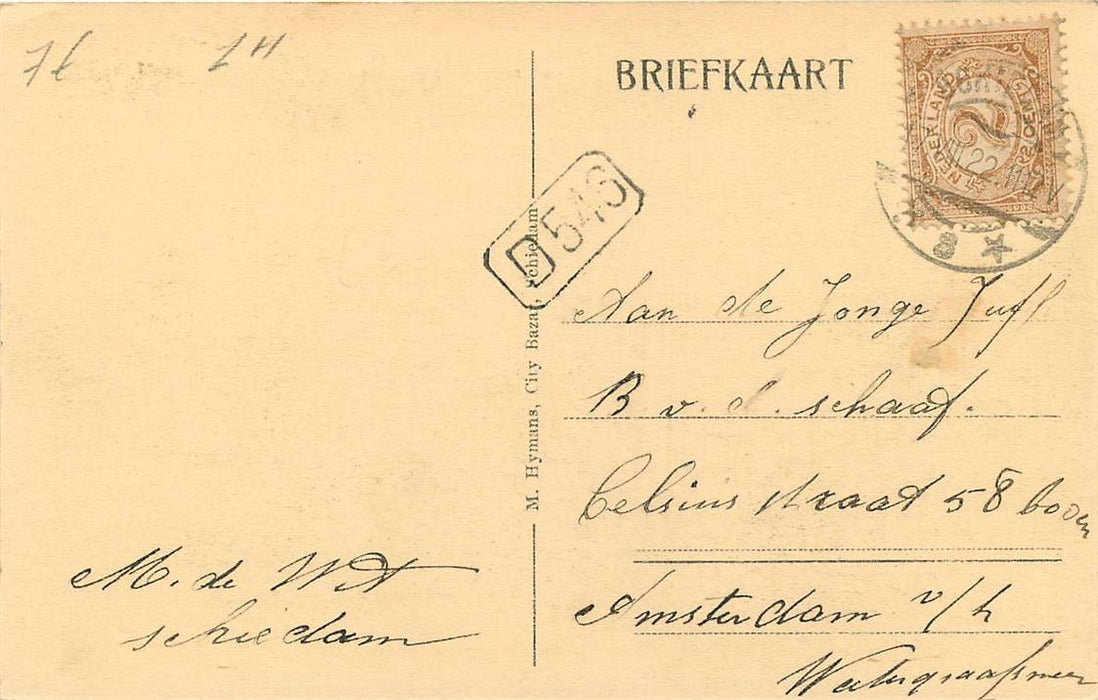 BRIEFKAART
NEDERLAND
2
22
8
D 546
M. Hymans, City Bazar, Schiedam
Aan de Jonge Jufl
B v. d. schaaf.
Celsius straat 58 boven
Amsterdam v/h
Watergraafsmeer
M. de Wit
schiedam